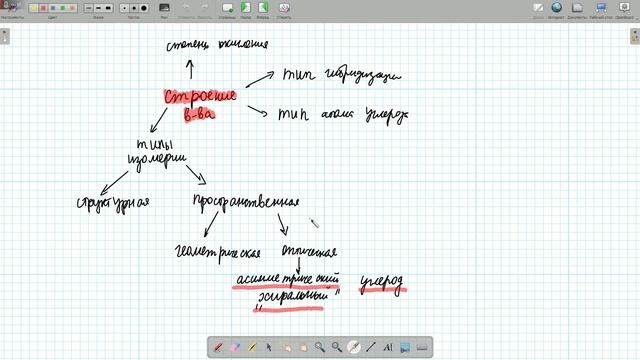 Инструменты
Цвет
Линия
Ластик
Фон
Undo
Страницы
Назад
Вперёд
Стереть
Доска
Интернет
Документы
Рабочий стол
OpenBoard
степень окисления
тип гибридизации
строение
в-ва
тип атома углерода
типы
изомерии
структурная
пространственная
геометрическая
оптическая
асимметрический углерод
"хиральный"